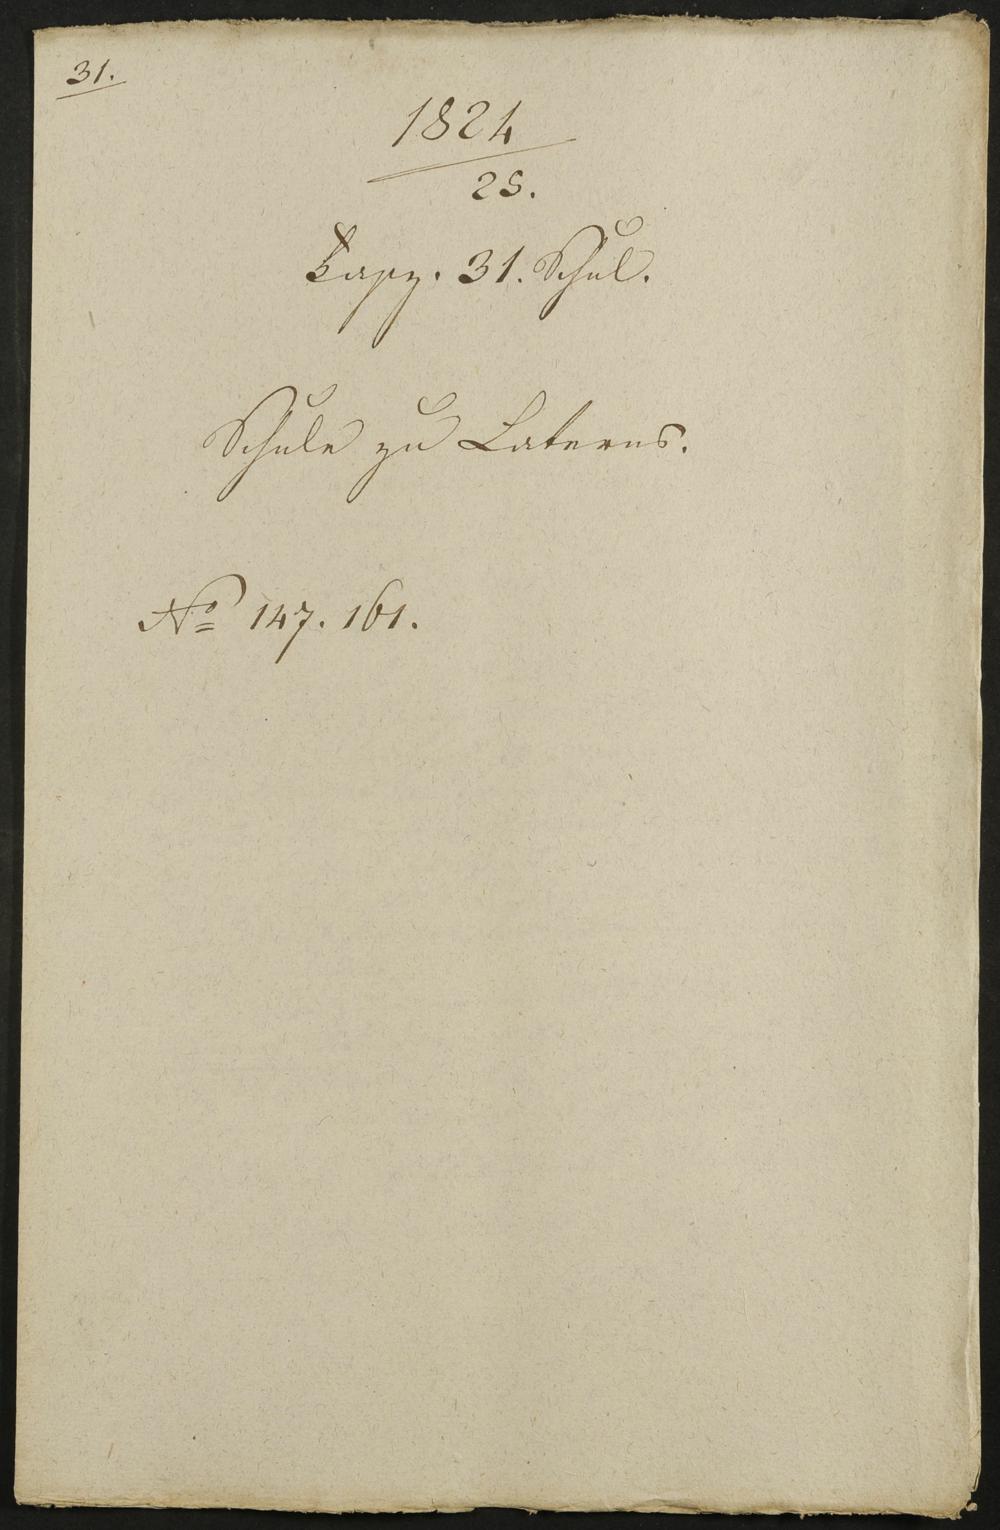 31.
1824
25.
Fasz. 31. Schul.
Schule zu Laterns.
No 147. 161.